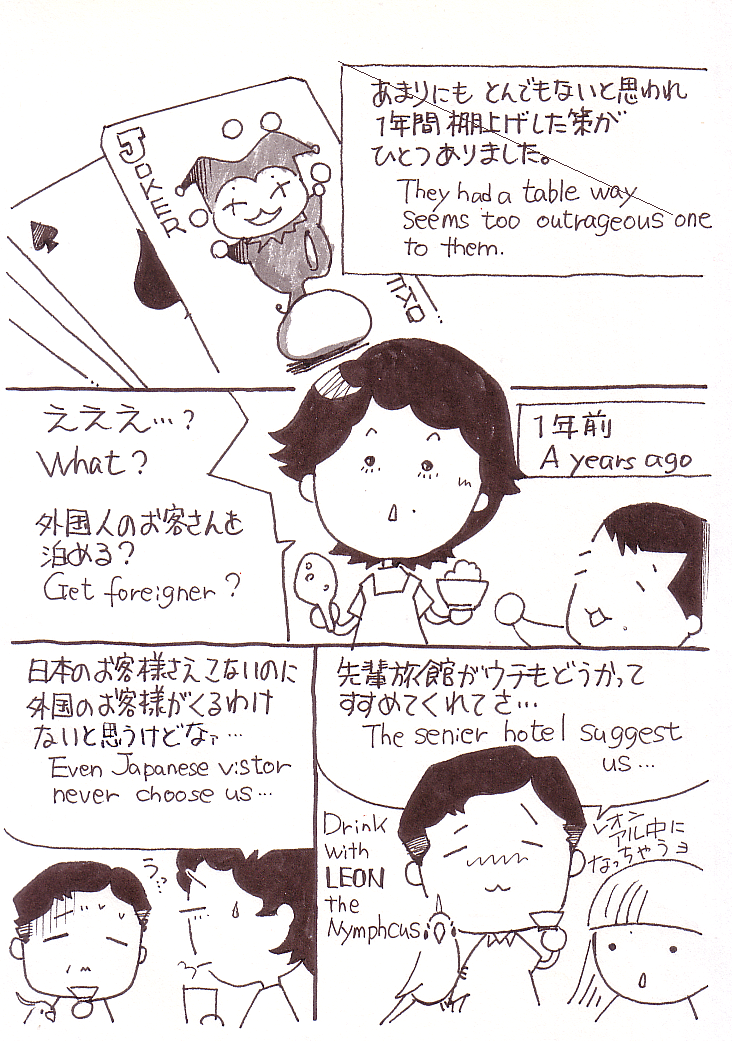 あまりにも とんでもないと思われ
1年間 棚上げした策が
ひとつありました。
They had a table way
seems too outrageous one
to them.
JOKER
1年前
A years ago
えええ…?
What?
外国人のお客さんを
泊める?
Get foreigner?
先輩旅館がウチもどうかって
すすめてくれてさ…
The senier hotel suggest
us…
Drink
with
LEON
the
Nymphcus
レオン
アル中に
なっちゃうヨ
日本のお客様さえこないのに
外国のお客様がくるわけ
ないと思うけどなァ…
Even Japanese vistor
never choose us…
う…?